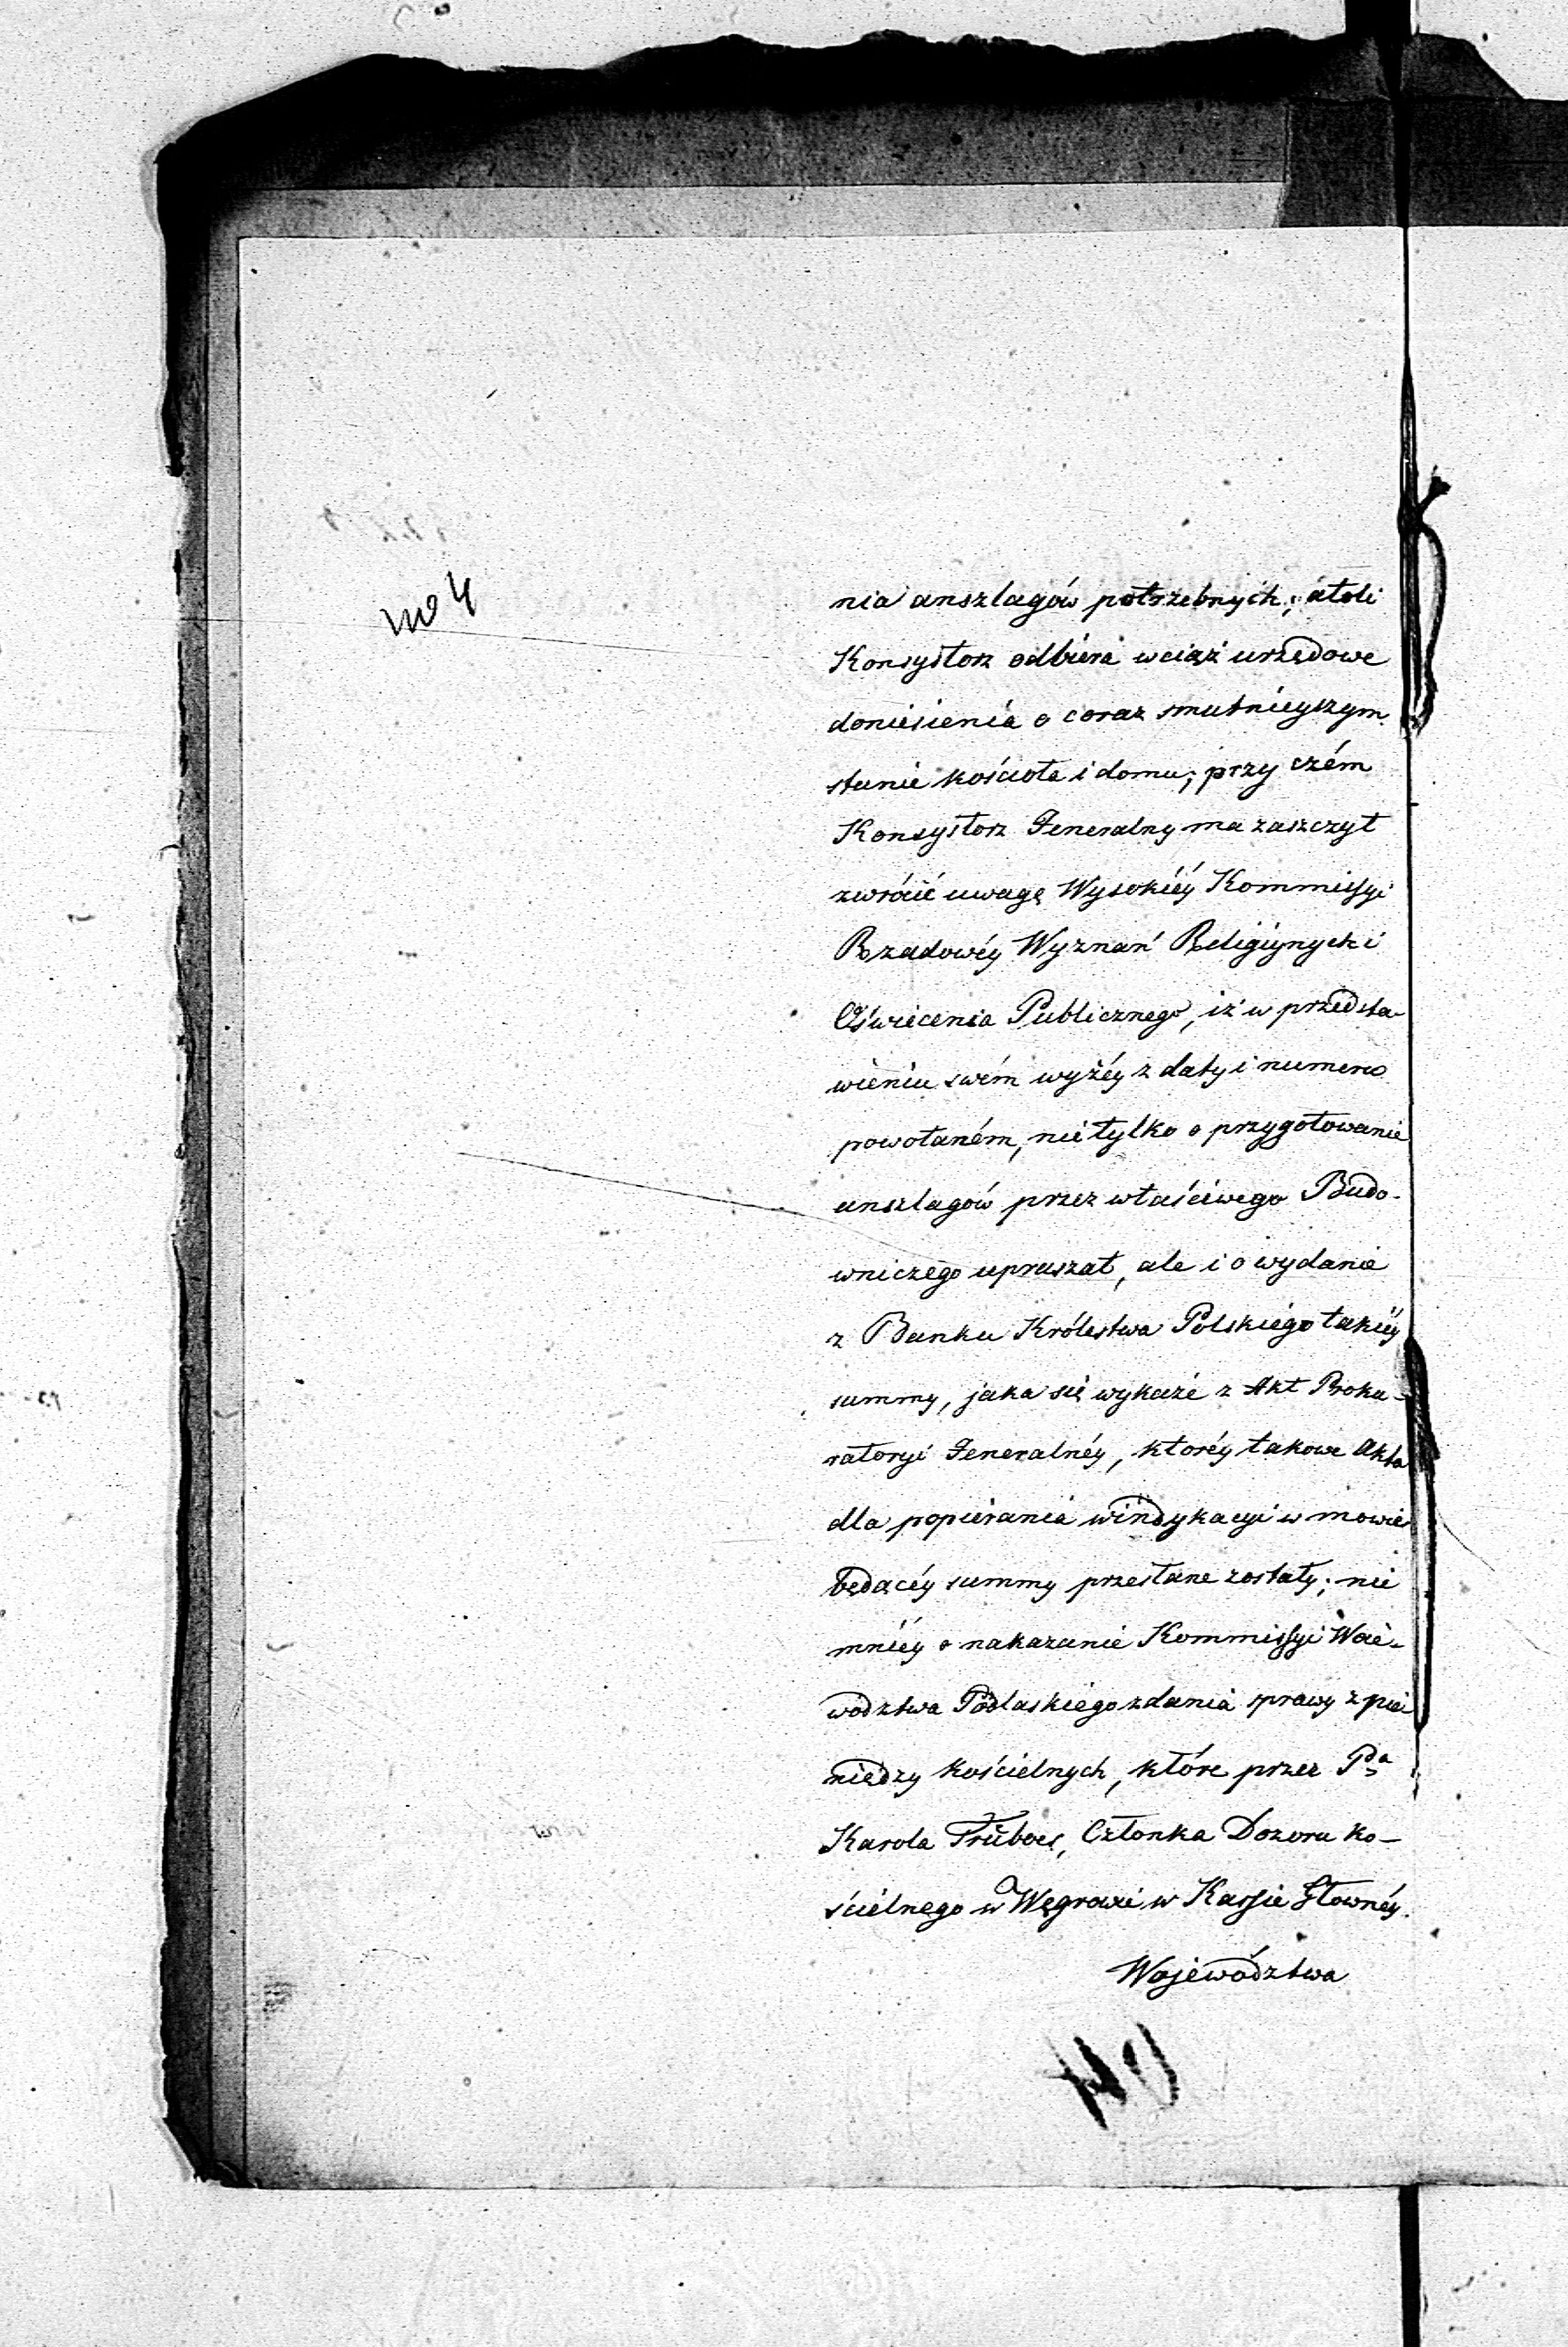 nia anszlagów potrzebnych; atoli
Konsystorz odbiera wciąż urzędowe
doniesienia o coraz smutnieyszym
stanie kościoła i domu; przy czém
Konsystorz Jeneralny ma zaszczyt
zwrócić uwagę Wysokiéy Kommissyi
Rządowéy Wyznań Religiynych i
Oświecenia Publicznego, iż w przedsta-
wieniu swém wyżéy z daty i numeru
powołaném, nie tylko o przygotowanie
anszlagów przez właściwego Budo-
wniczego upraszał, ale i o wydanie
z Banku Królestwa Polskiego takiéy
summy, jaka się wykaże z Akt Proku-
ratoryi Jeneralnéy, któréy takowe Akta
dla popierania windykacyi w mowie
będącéy summy przesłane zostały; nie
mniéy o nakazanie Kommissyi Woie-
wództwa Podlaskiego zdania sprawy z pie-
niędzy kościelnych, które przez Pda
Karola
Członka Dozoru ko-
ścielnego w Węgrowie w Kassie Głownéy
Województwa